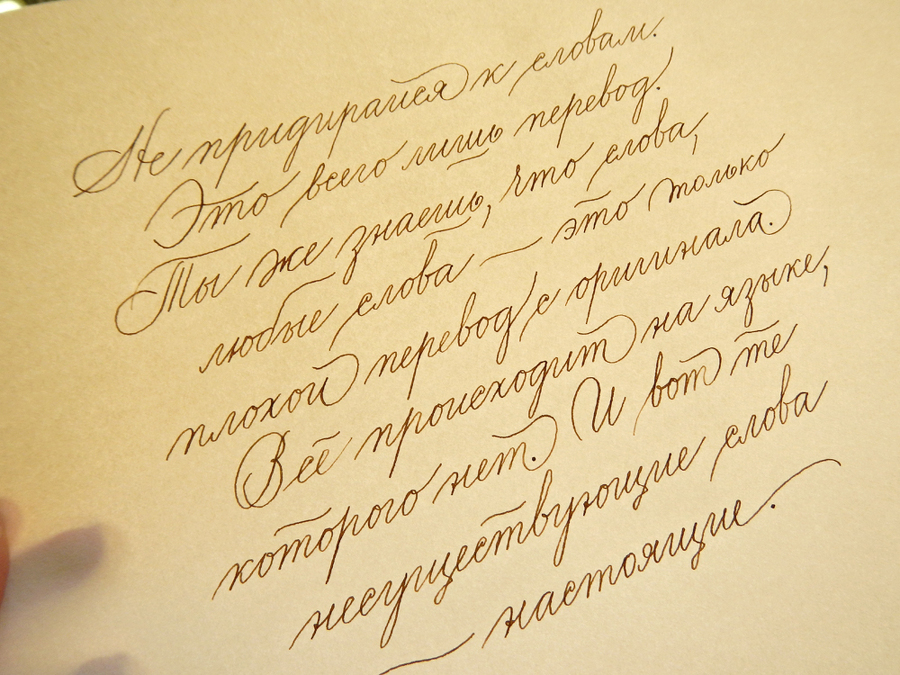 Не придирайся к словам.
Это всего лишь перевод.
Ты же знаешь, что слова,
любые слова — это только
плохой перевод с оригинала.
Всё происходит на языке,
которого нет. И вот те
несуществующие слова
— настоящие.